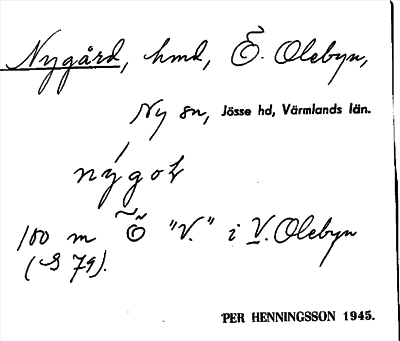 Nygård, hmd, Ö. Olebyn,
Ny sn, Jösse hd, Värmlands län.
nýgoḷ
100 m Ö "V." i V. Olebyn
(S 79).
PER HENNINGSSON 1945.